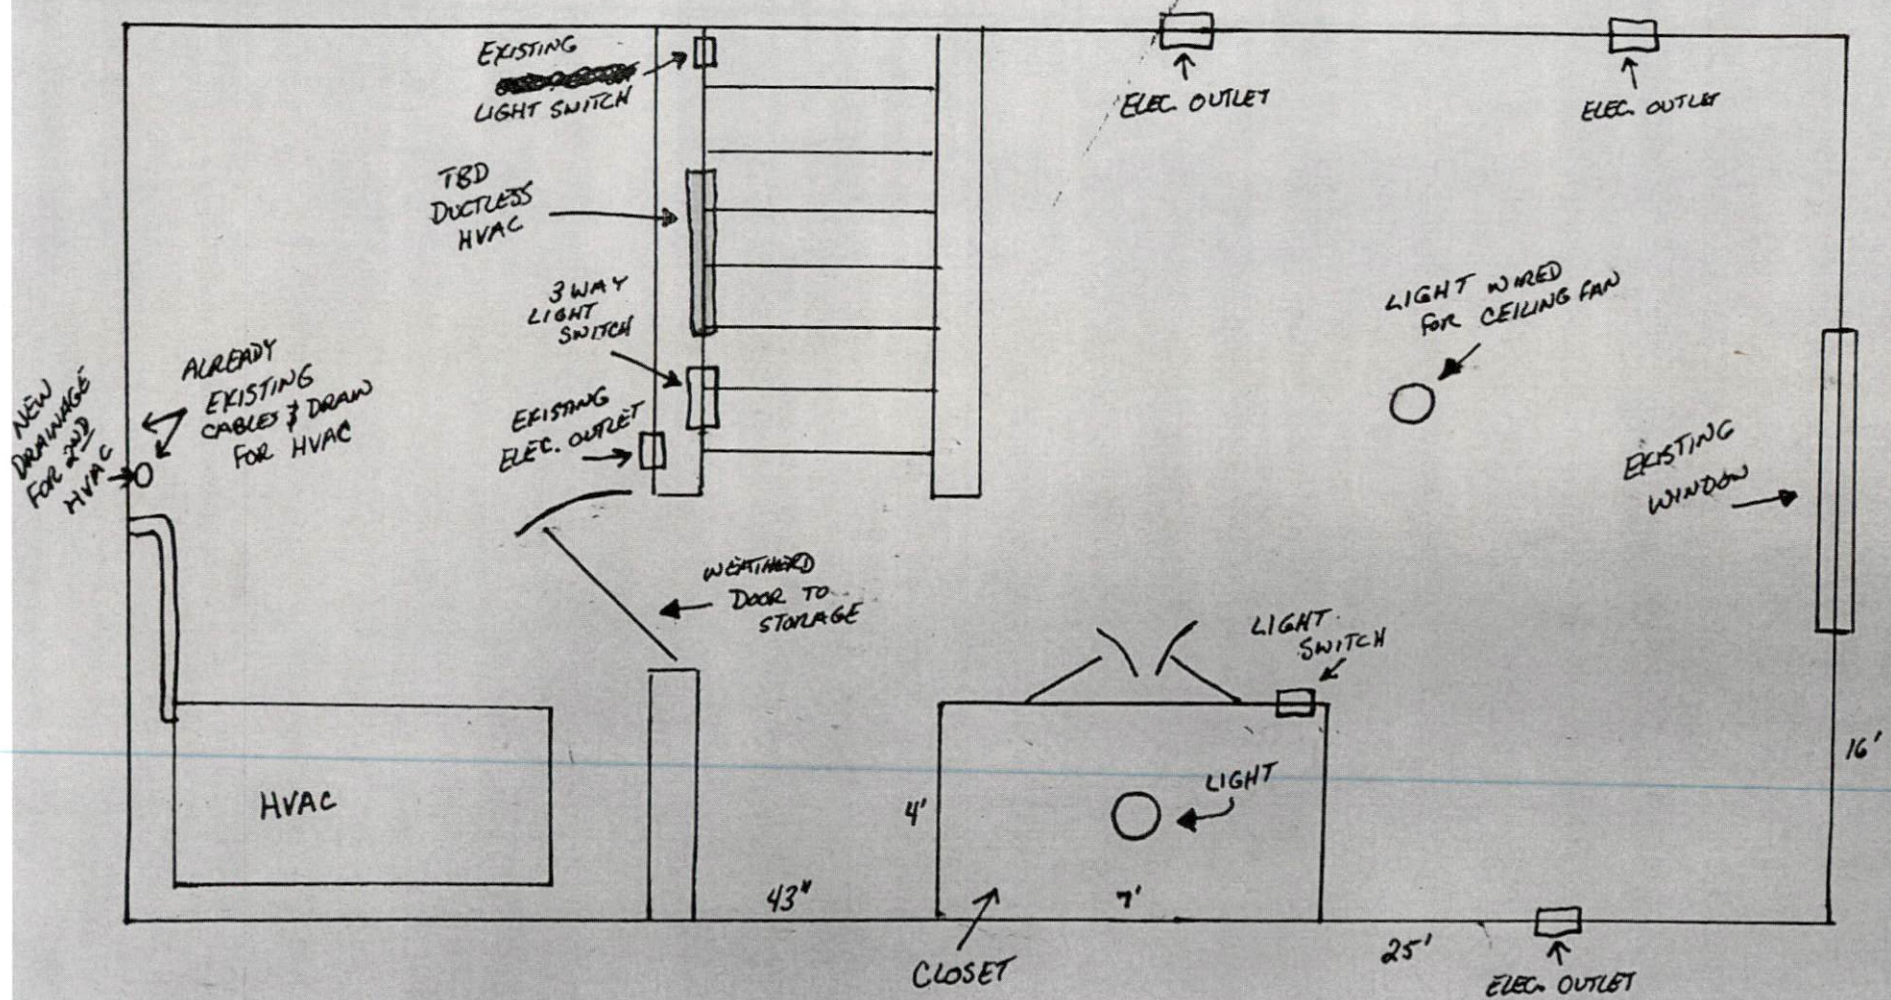 EXISTING
LIGHT SWITCH
ELEC. OUTLET
ELEC. OUTLET
TBD
DUCTLESS
HVAC
3 WAY
LIGHT
SWITCH
LIGHT WIRED
FOR CEILING FAN
ALREADY
EXISTING
CABLES & DRAIN
FOR HVAC
NEW
DRAINAGE
FOR 2ND
HVAC
EXISTING
ELEC. OUTLET
EXISTING
WINDOW
WEATHERD
DOOR TO
STORAGE
LIGHT
SWITCH
16'
HVAC
LIGHT
4'
43"
7'
25'
CLOSET
ELEC. OUTLET